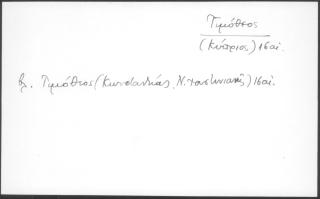 Τιμόθεος
(Κύπριος) 16 αἰ.
βλ. Τιμόθεος (Κωνσταντίας, Ν. Ἰουστινιανῆς) 16 αἰ.